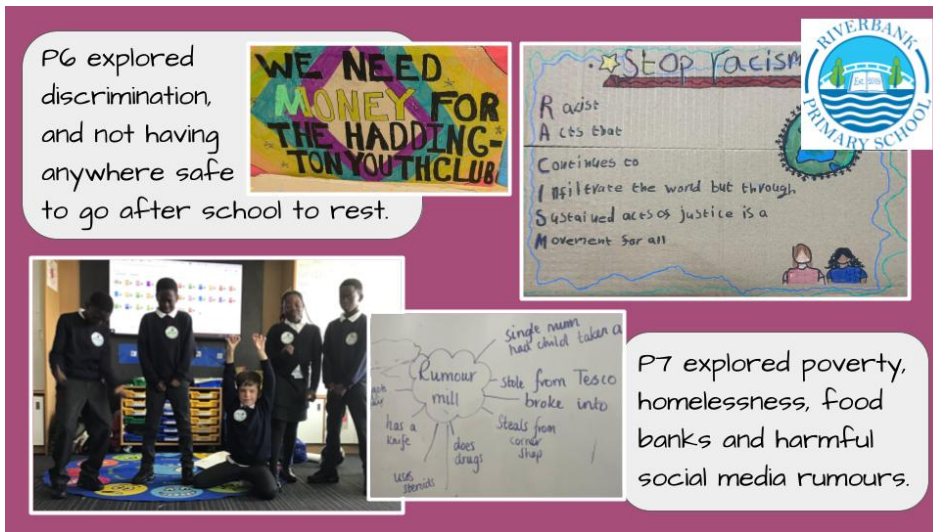 P6 explored
discrimination,
and not having
anywhere safe
to go after school to rest.
WE NEED
MONEY FOR
THE HADDING-
TON YOUTH CLUB
Stop racism
Racist
Acts that
Continues to
Infiltrate the world but through
Sustained acts of justice is a
Movement for all
RIVERBANK
PRIMARY SCHOOL
Rumour
mill
single mum
had child taken a
stole from Tesco
broke into
Steals from
corner
shop
does
drugs
uses
steroids
has a
knife
P7 explored poverty,
homelessness, food
banks and harmful
social media rumours.